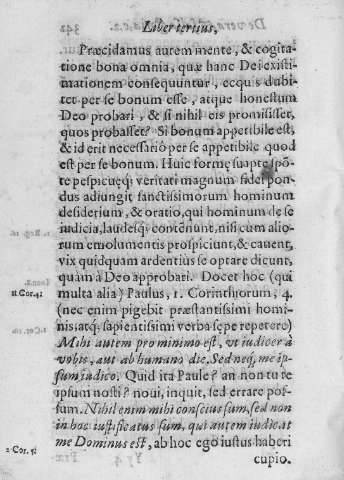 342
Liber tertius.
Præcidamus autem mente, & cogita-
tione bona omnia, quæ hanc Dei existi-
mationem consequuntur, ecquis dubi-
tet per se bonum esse, atque honestum
Deo probari, & si nihil eis promisisset,
quos probasset? Si bonum appetibile est,
& id erit necessariò per se appetibile quod
est per se bonum. Huic formę suapte spõ-
te pespicuęq; veritati magnum fidei pon-
dus adiungit sanctissimorum hominum
desiderium, & oratio, qui hominum de se
iudicia, laudesq; contenunt, nisi cum alio-
rum emolumentis prospiciunt, & cauent,
vix quidquam ardentius se optare dicunt,
quàm à Deo approbari. Docet hoc (qui
11 Cor. 4.
multa alia) Paulus, 1. Corinthiorum, 4.
(nec enim pigebit præstantissimi homi-
nis, atq; sapientissimi verba sępe repetere)
Mihi autem pro minimo est, vt iudicer à
vobis, aut ab humano die. Sed neq, me ip-
sum iudico. Quid ita Paule? an non tu te
ipsum nosti? noui, inquit, sed errare pos-
sum. Nihil enim mihi conscius sum, sed non
in hoc iustificatus sum, qui autem iudicat
2 Cor. 5.
me Dominus est, ab hoc ego iustus haberi
cupio.